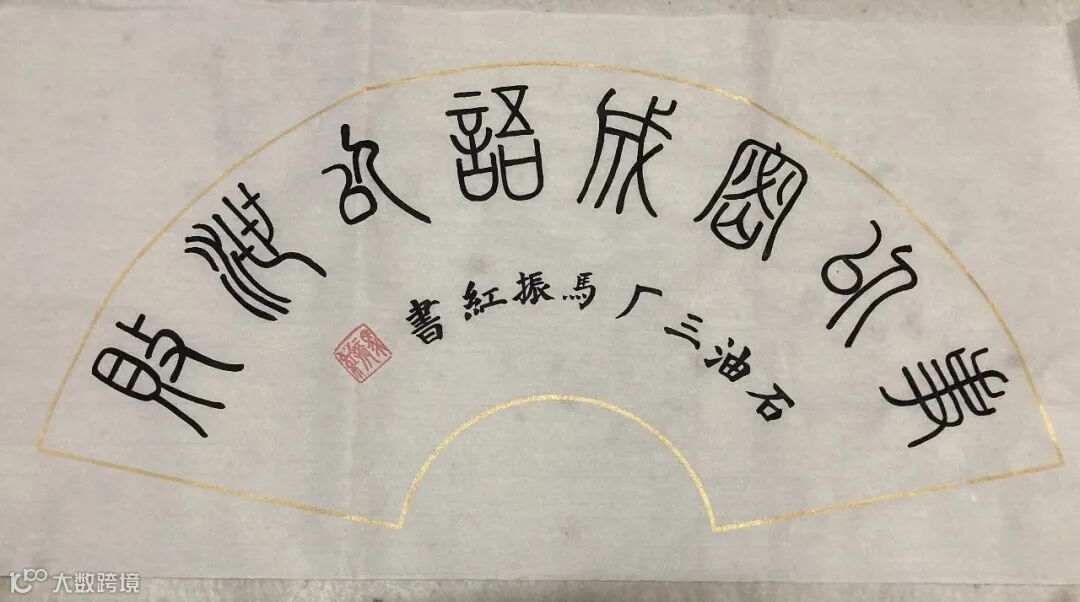 事以密成語以泄敗
石油三厂馬振紅書
大数跨境